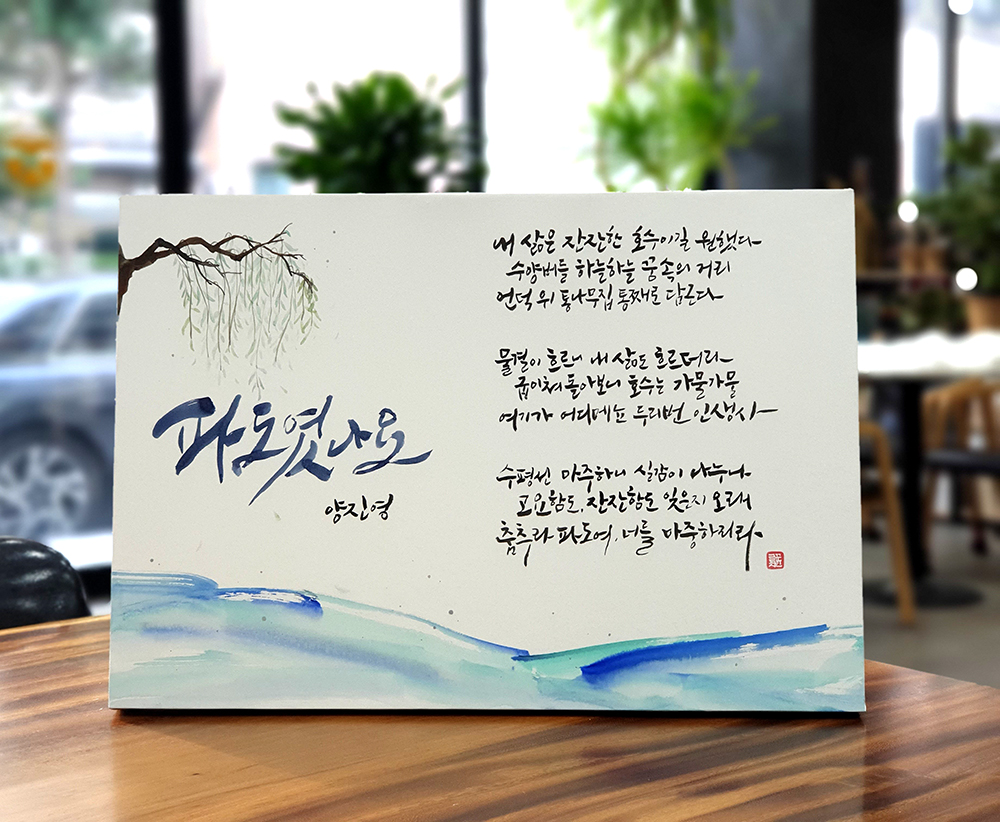 파도였나요
양진영
내 삶은 잔잔한 호수이길 원했다
수양버들 하늘하늘 꿈속의 거리
언덕 위 통나무집 통째로 담근다
물결이 흐르니 내 삶도 흐르더라
굽이쳐 돌아보니 호수는 가물가물
여기가 어디메뇨 두리번 인생사
수평선 마주하니 실감이 나누나
고요함도, 잔잔함도 잊은지 오래
춤추라 파도여, 너를 마중하리라